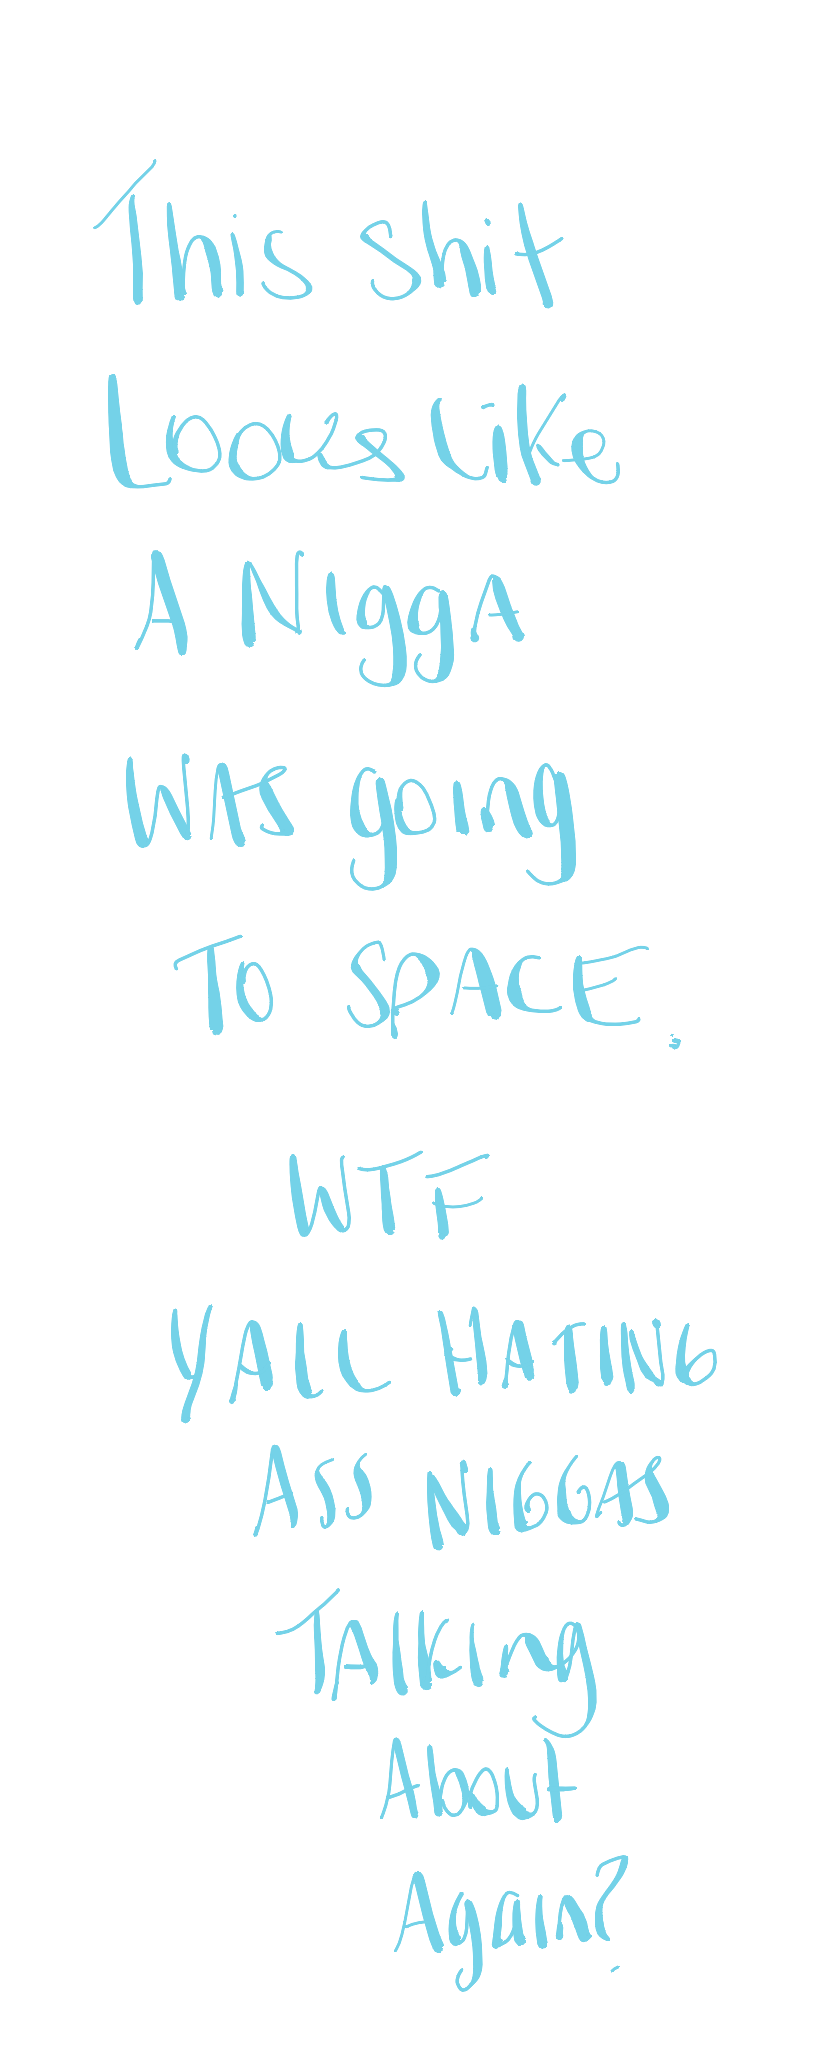 This shit
Looks like
A NiggA
WAS going
To SPACE.
WTF
YALL HATING
ASS NIGGAS
TAlking
About
Again?